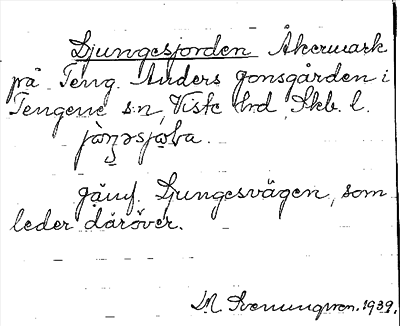 Ljungesjorden Åkermark
på Teng. Anders Jonsgården i
Tengene s:n, Viste hrd, Skb. l.
jämf. Ljungesvägen, som
leder däröver.
M Svenungsson. 1939.